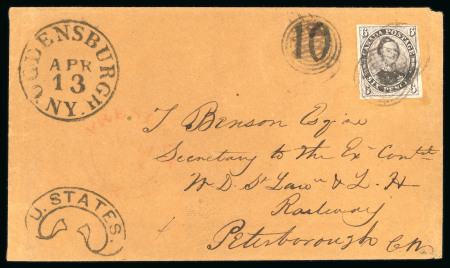 OGDENSBURGH
APR
13
N.Y.
10
CANADA POSTAGE
SIX PENCE
6 6
6 6
U. STATES.
T Benson Esqire
Secretary to the Ex Comtee
W. D. St Lawn & L. H
Railway
Peterborough CW